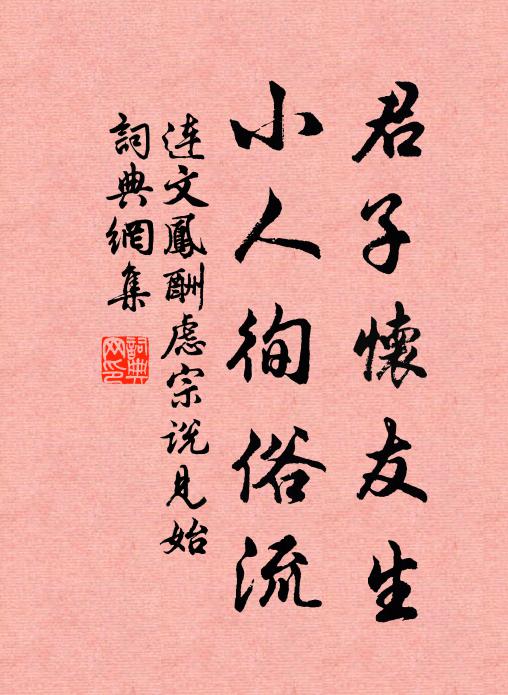 君子懷友生
小人徇俗流
連文鳳酬慮宗說見始
詞典網集
詞典網印